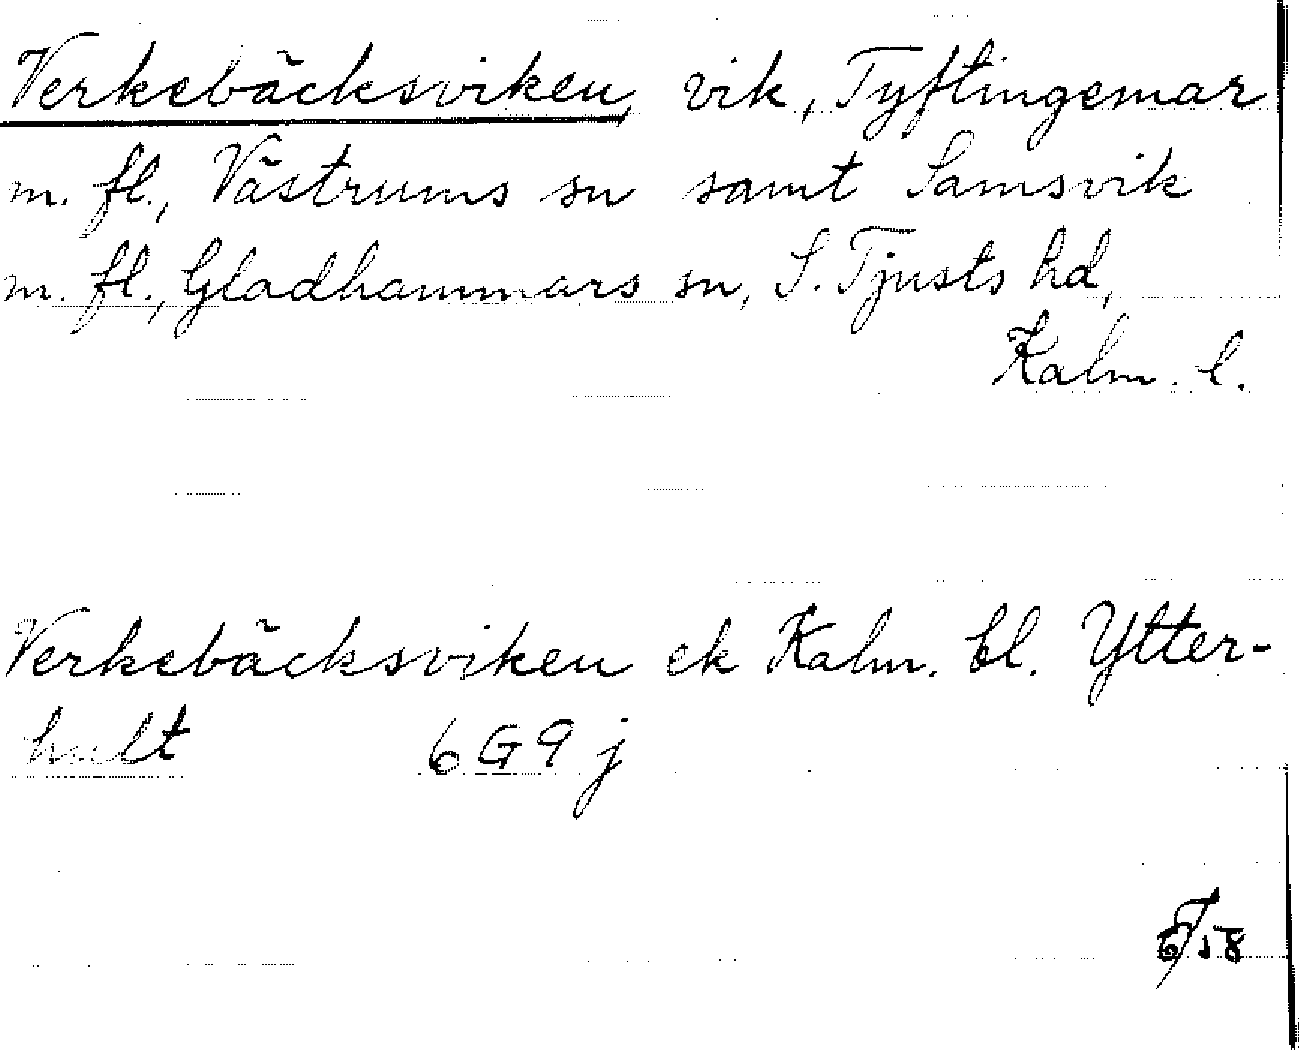 Verkebäcksviken, vik, Tyftingemar
m. fl., Västrums sn samt Samsvik
m. fl., Gladhammars sn, S. Tjusts hd,
Kalm. l.
Verkebäcksviken ek Kalm. bl. Ytter-
hult 6G9j